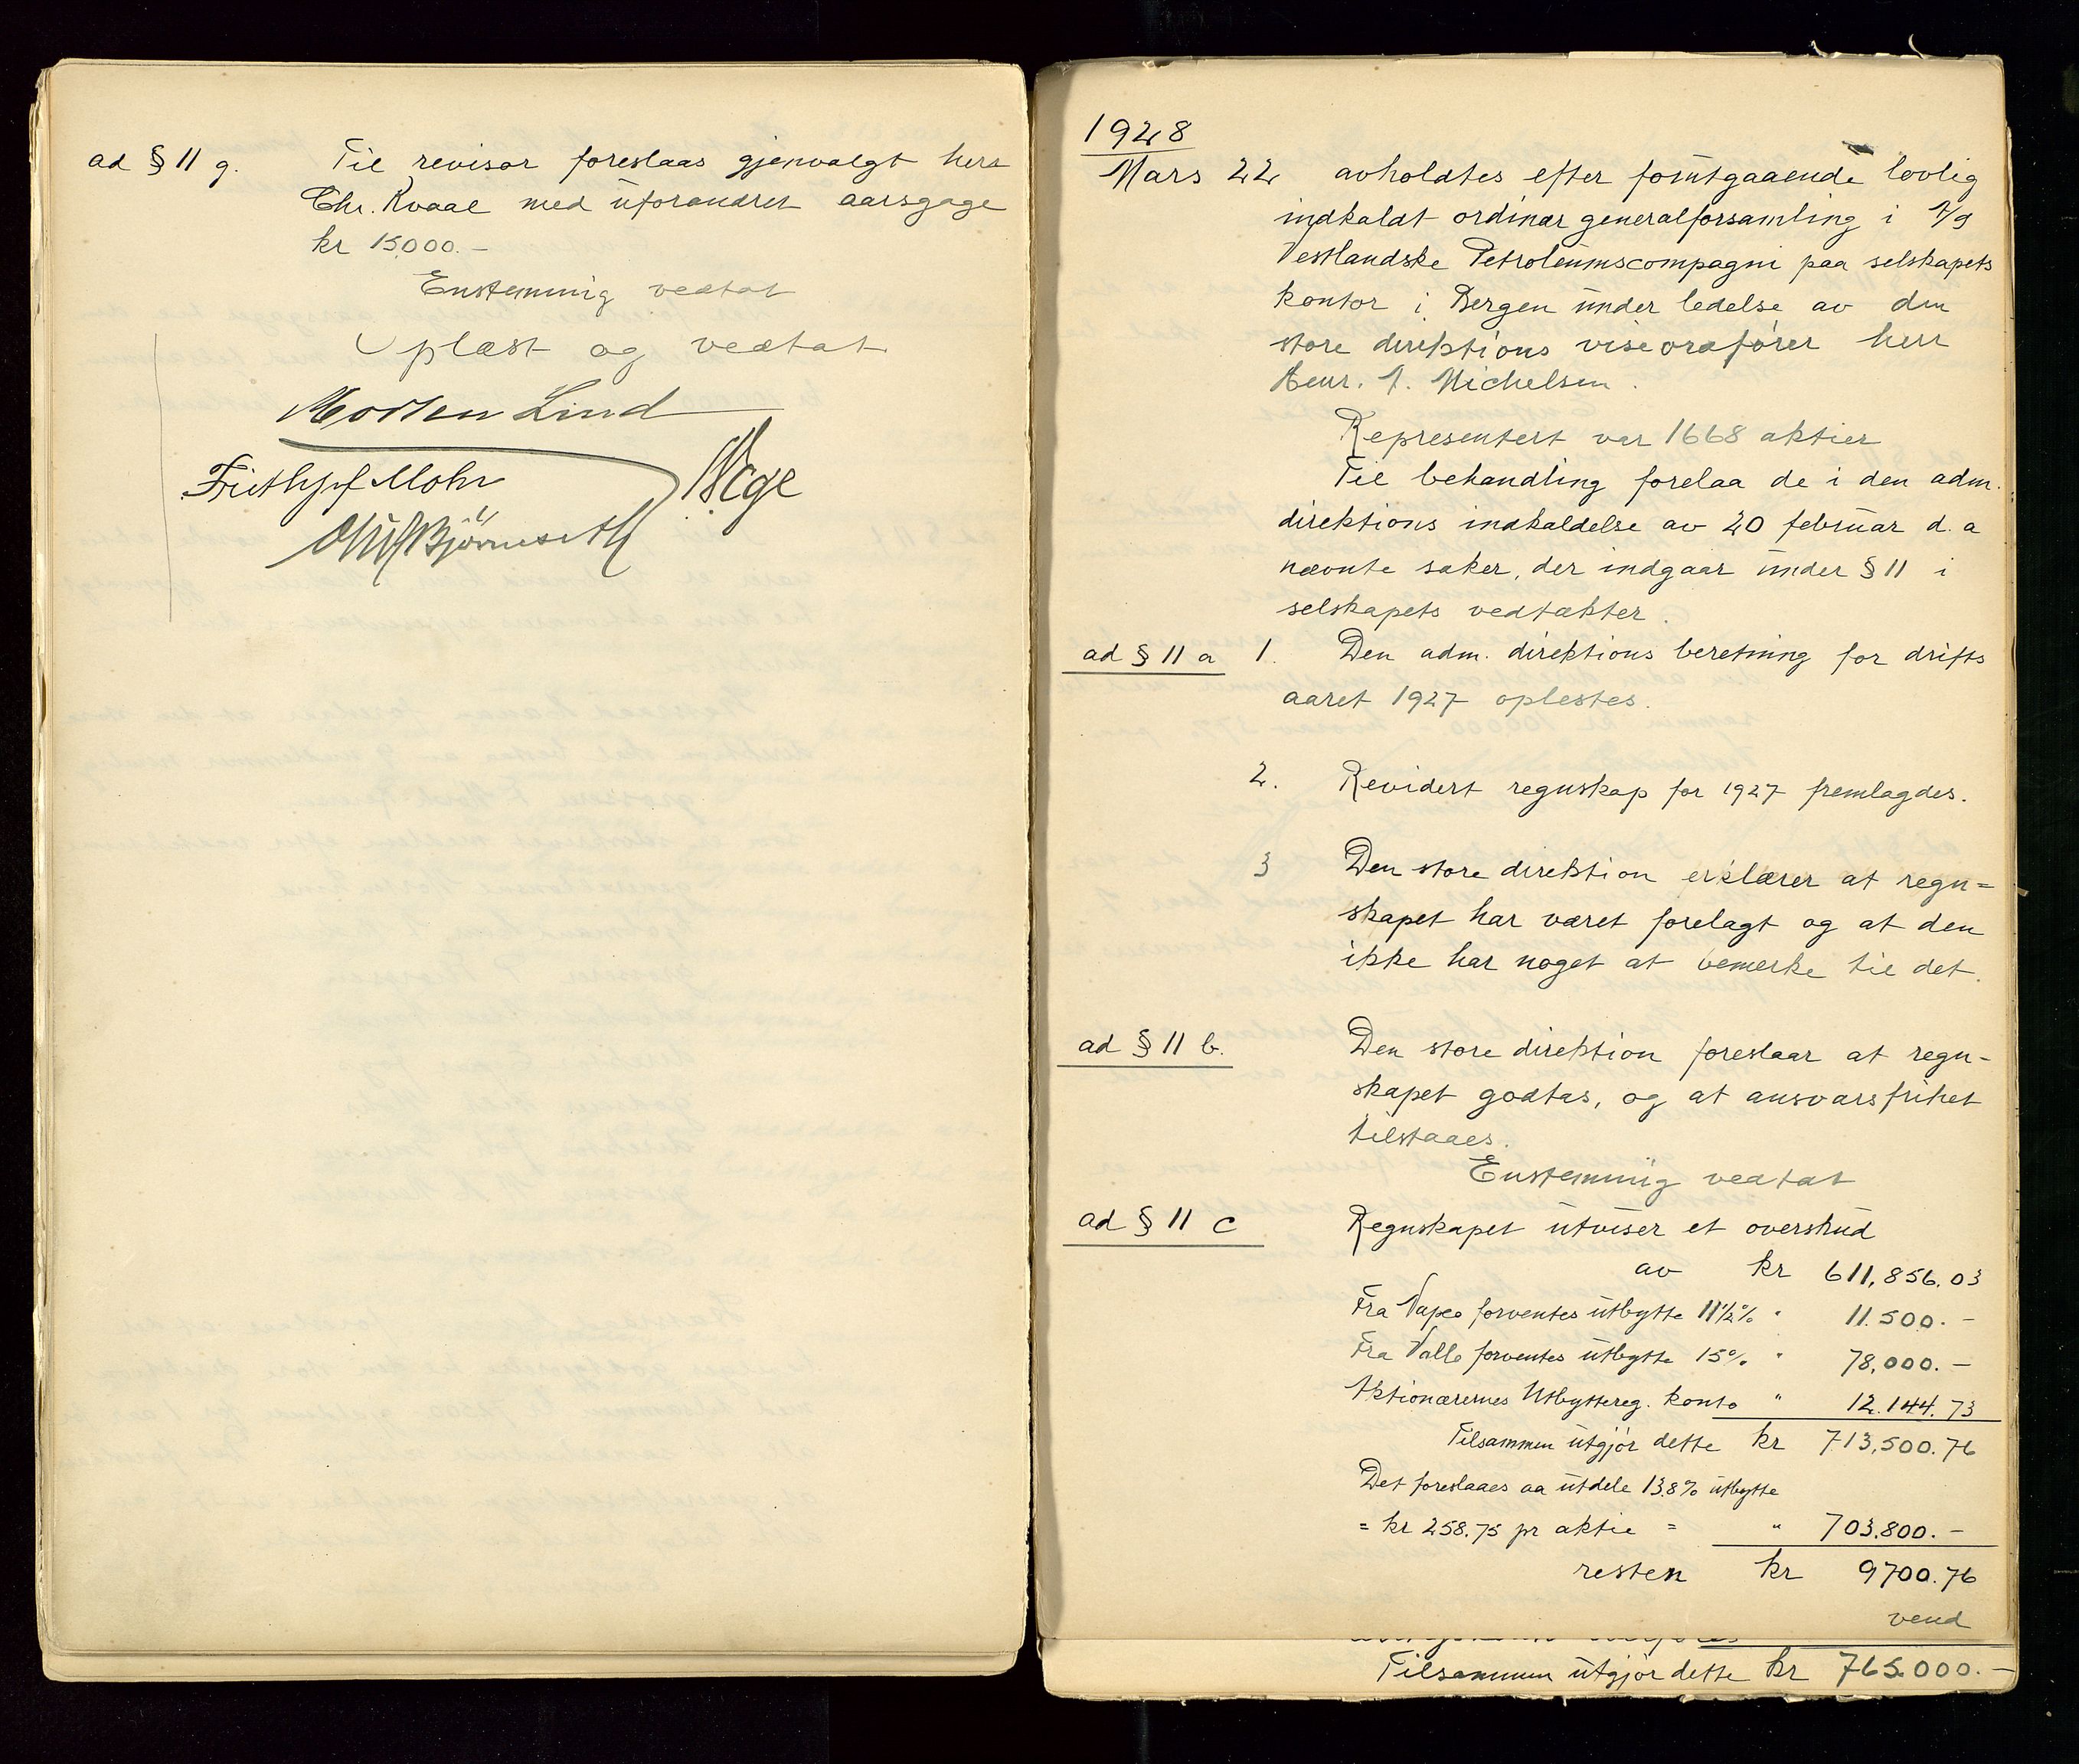 ad § 11 g. Til revisor foreslaas gjenvalgt herr
Chr. Kvaal med uforandret aarsgage
kr 15,000.-
Enstemmig vedtat
Oplæst og vedtat
Morten Lind
Frithjof Mohr
1928
Mars 22 avholdtes efter forutgaaende lovlig
indkaldt ordinær generalforsamling i A/S
Vestlandske Petroleumscompagni paa selskapets
kontor i Bergen under ledelse av den
store direktions viseordfører herr
Henr. J. Michelsen.
Representert var 1668 aktier
Til behandling forelaa de i den adm.
direktions indkaldelse av 20 februar d.a
nævnte saker, der indgaar under § 11 i
selskapets vedtækter.
ad § 11 a 1. Den adm. direktions beretning for drifts
aaret 1927 oplestes.
2. Revidert regnskap for 1927 fremlagdes.
3 Den store direktion erklærer at regn=
skapet har været forelagt og at den
ikke har noget at bemerke til det.
ad § 11 b. Den store direktion foreslaar at regn-
skapet godtas, og at ansvarsfrihet
tilstaaes.
Enstemmig vedtat
ad § 11 c Regnskapet utviser et overskud
av kr 611,856.03
Fra Vapeo forventes utbytte 11½% " 11.500.-
Fra Vallo forventes utbytte 15% " 78,000.-
Aktionærernes Utbyttereg. konto " 12.144.73
Tilsammen utgjør dette kr 713,500.76
Det foreslaaes aa utdele 13.8% utbytte
= kr 258.75 pr aktie = " 703.800.-
resten kr 9700.76
vend
Tilsammen utgjør dette kr 765.000.-